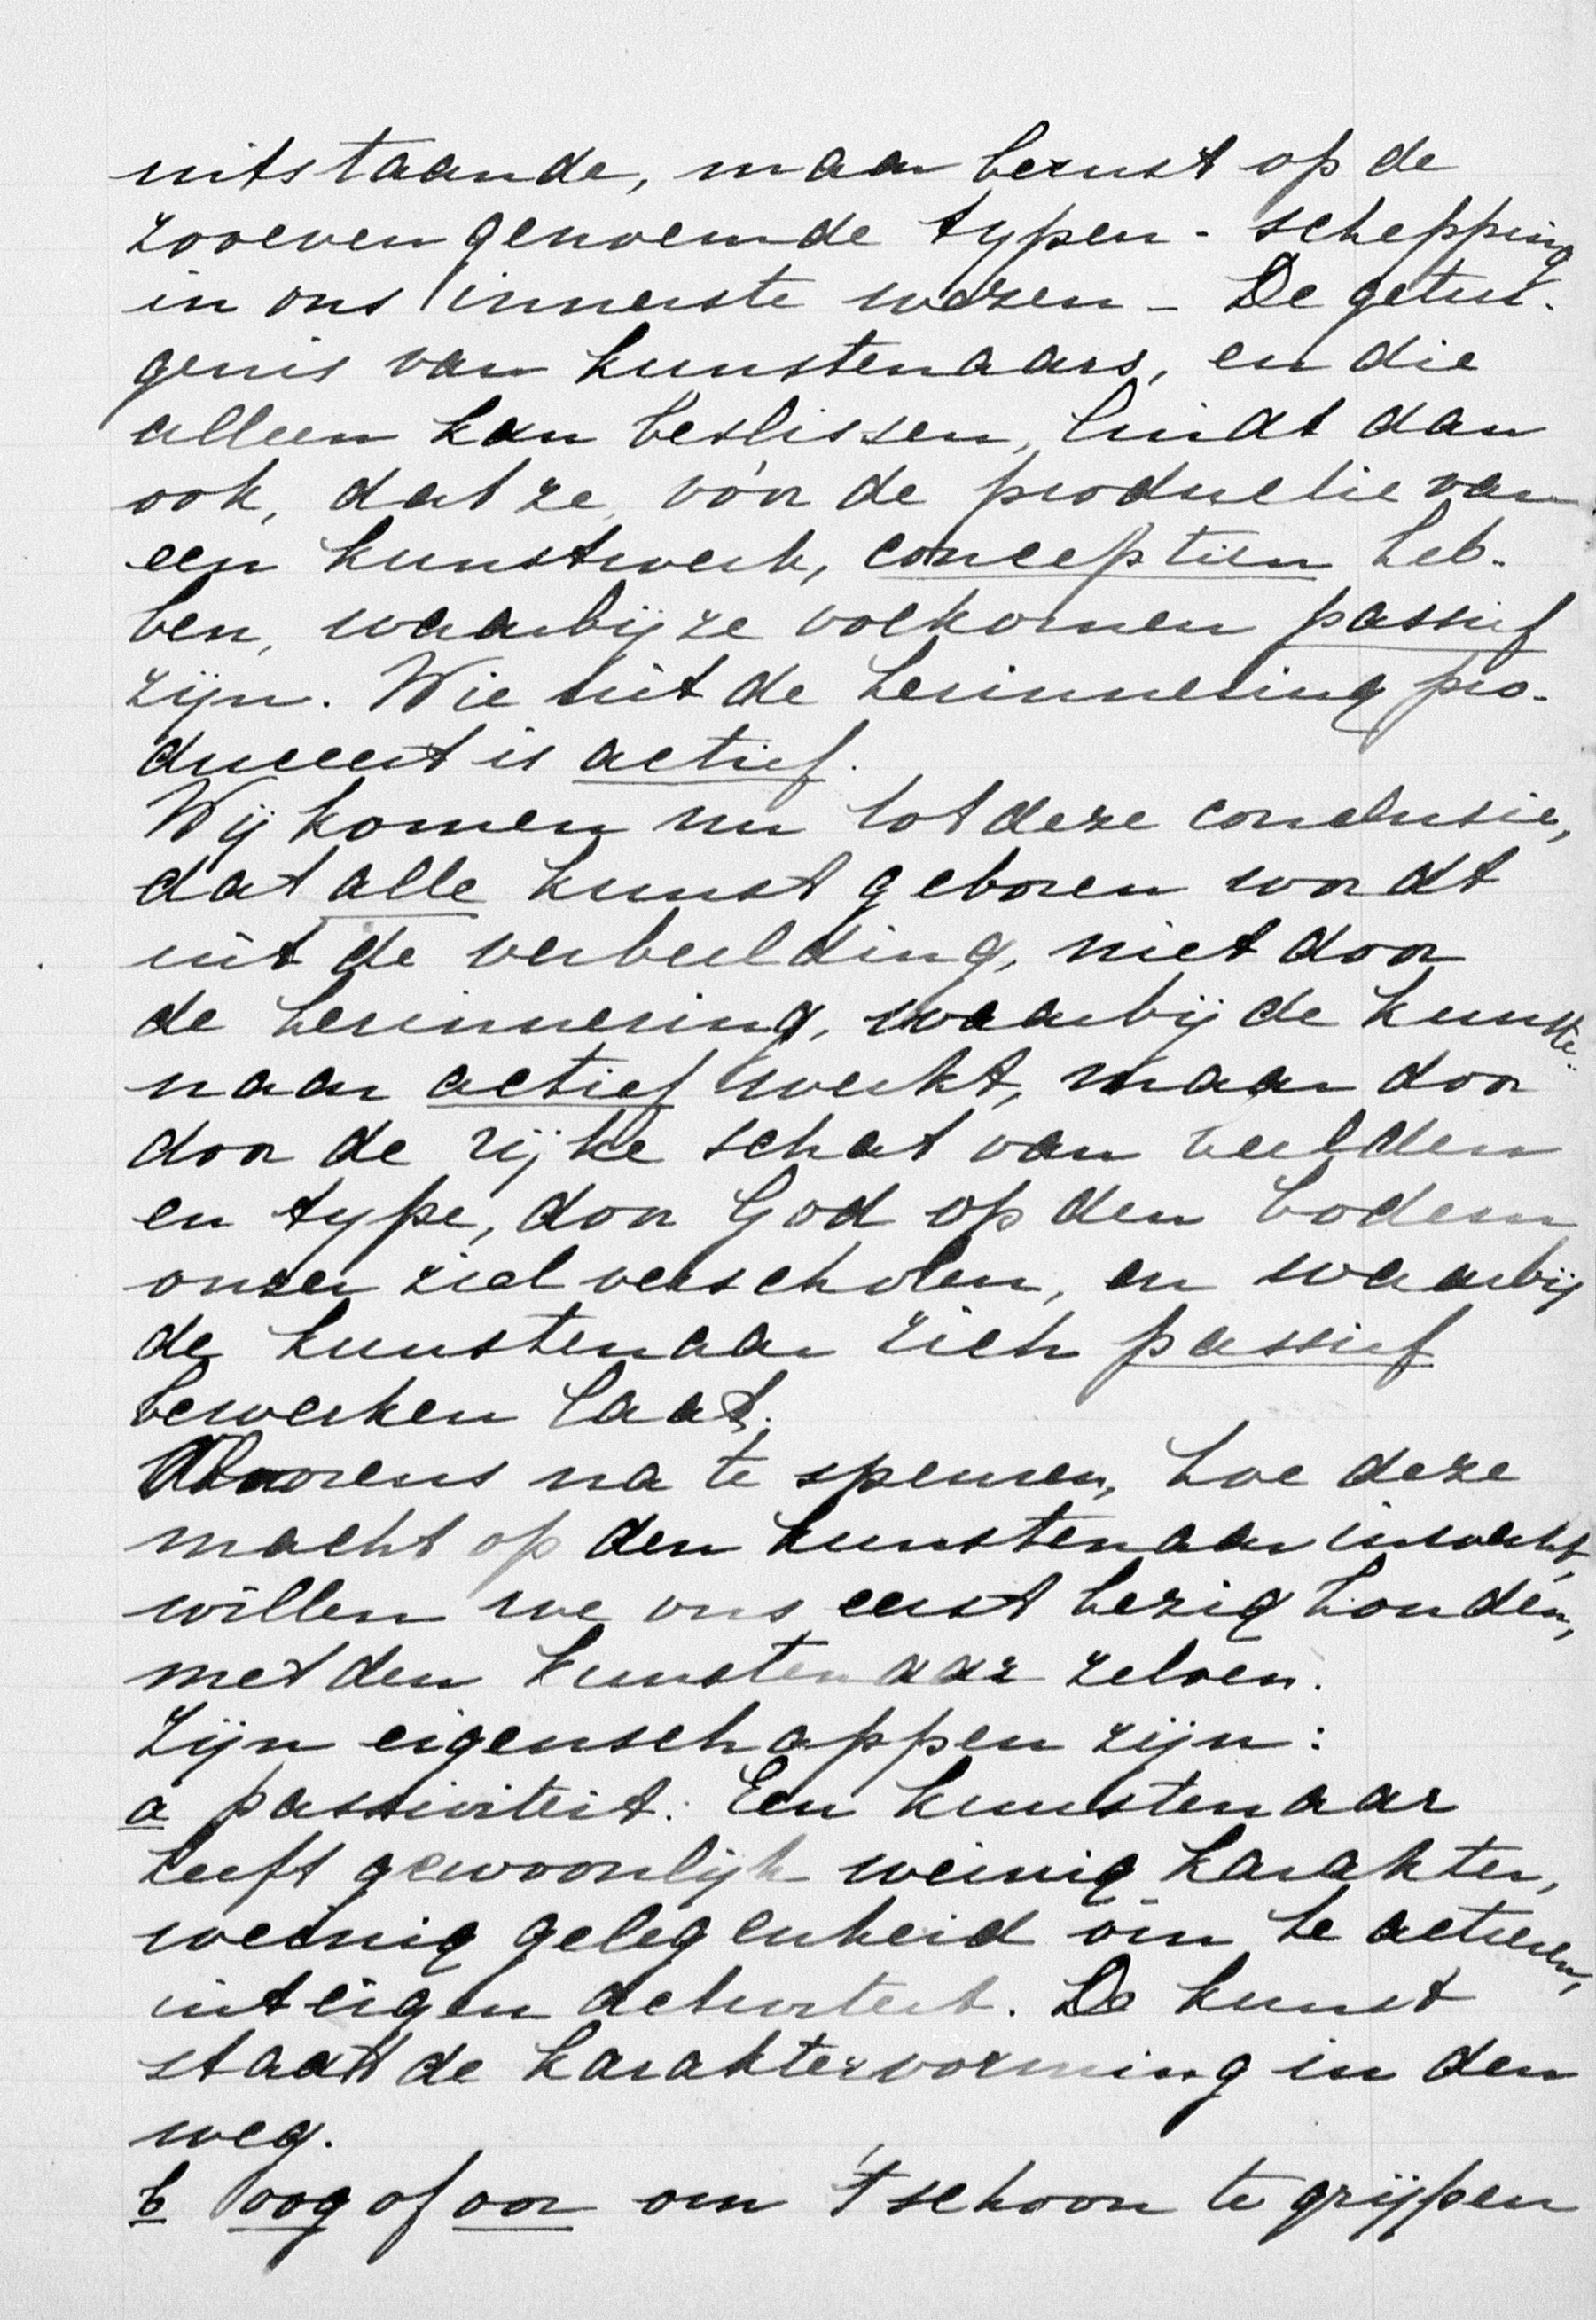 uitstaande, maar berust op de
zooeven genoemde typen-schepping
in ons innerste wezen – De getui-
genis van kunstenaars, en die
alleen kan beslissen, luidt dan
ook, dat ze, vóór de productie van
een kunstwerk, conceptiën heb-
ben, waarbij ze volkomen passief
zijn. Wie uit de herinnering pro-
duceert is actief.
Wij komen nu tot deze conclusie,
dat alle kunst geboren wordt
uit de verbeelding, niet door
de herinnering, waarbij de kunste-
naar actief werkt, maar door
door de rijke schat van beelden
en type, door God op den bodem
onzer ziel verscholen, en waarbij
de kunstenaar zich passief
bewerken laat.
Alvorens na te speuren, hoe deze
macht op den kunstenaar inwerkt,
willen we ons eerst bezig houden,
met den kunstenaar zelven.
Zijn eigenschappen zijn:
a passiviteit. Een kunstenaar
heeft gewoonlijk weinig karakter,
weinig gelegenheid om te actieren,
uit eigen. De kunst
staat de karaktervorming in den
weg.
b oog of oor om 't schoon te grijpen